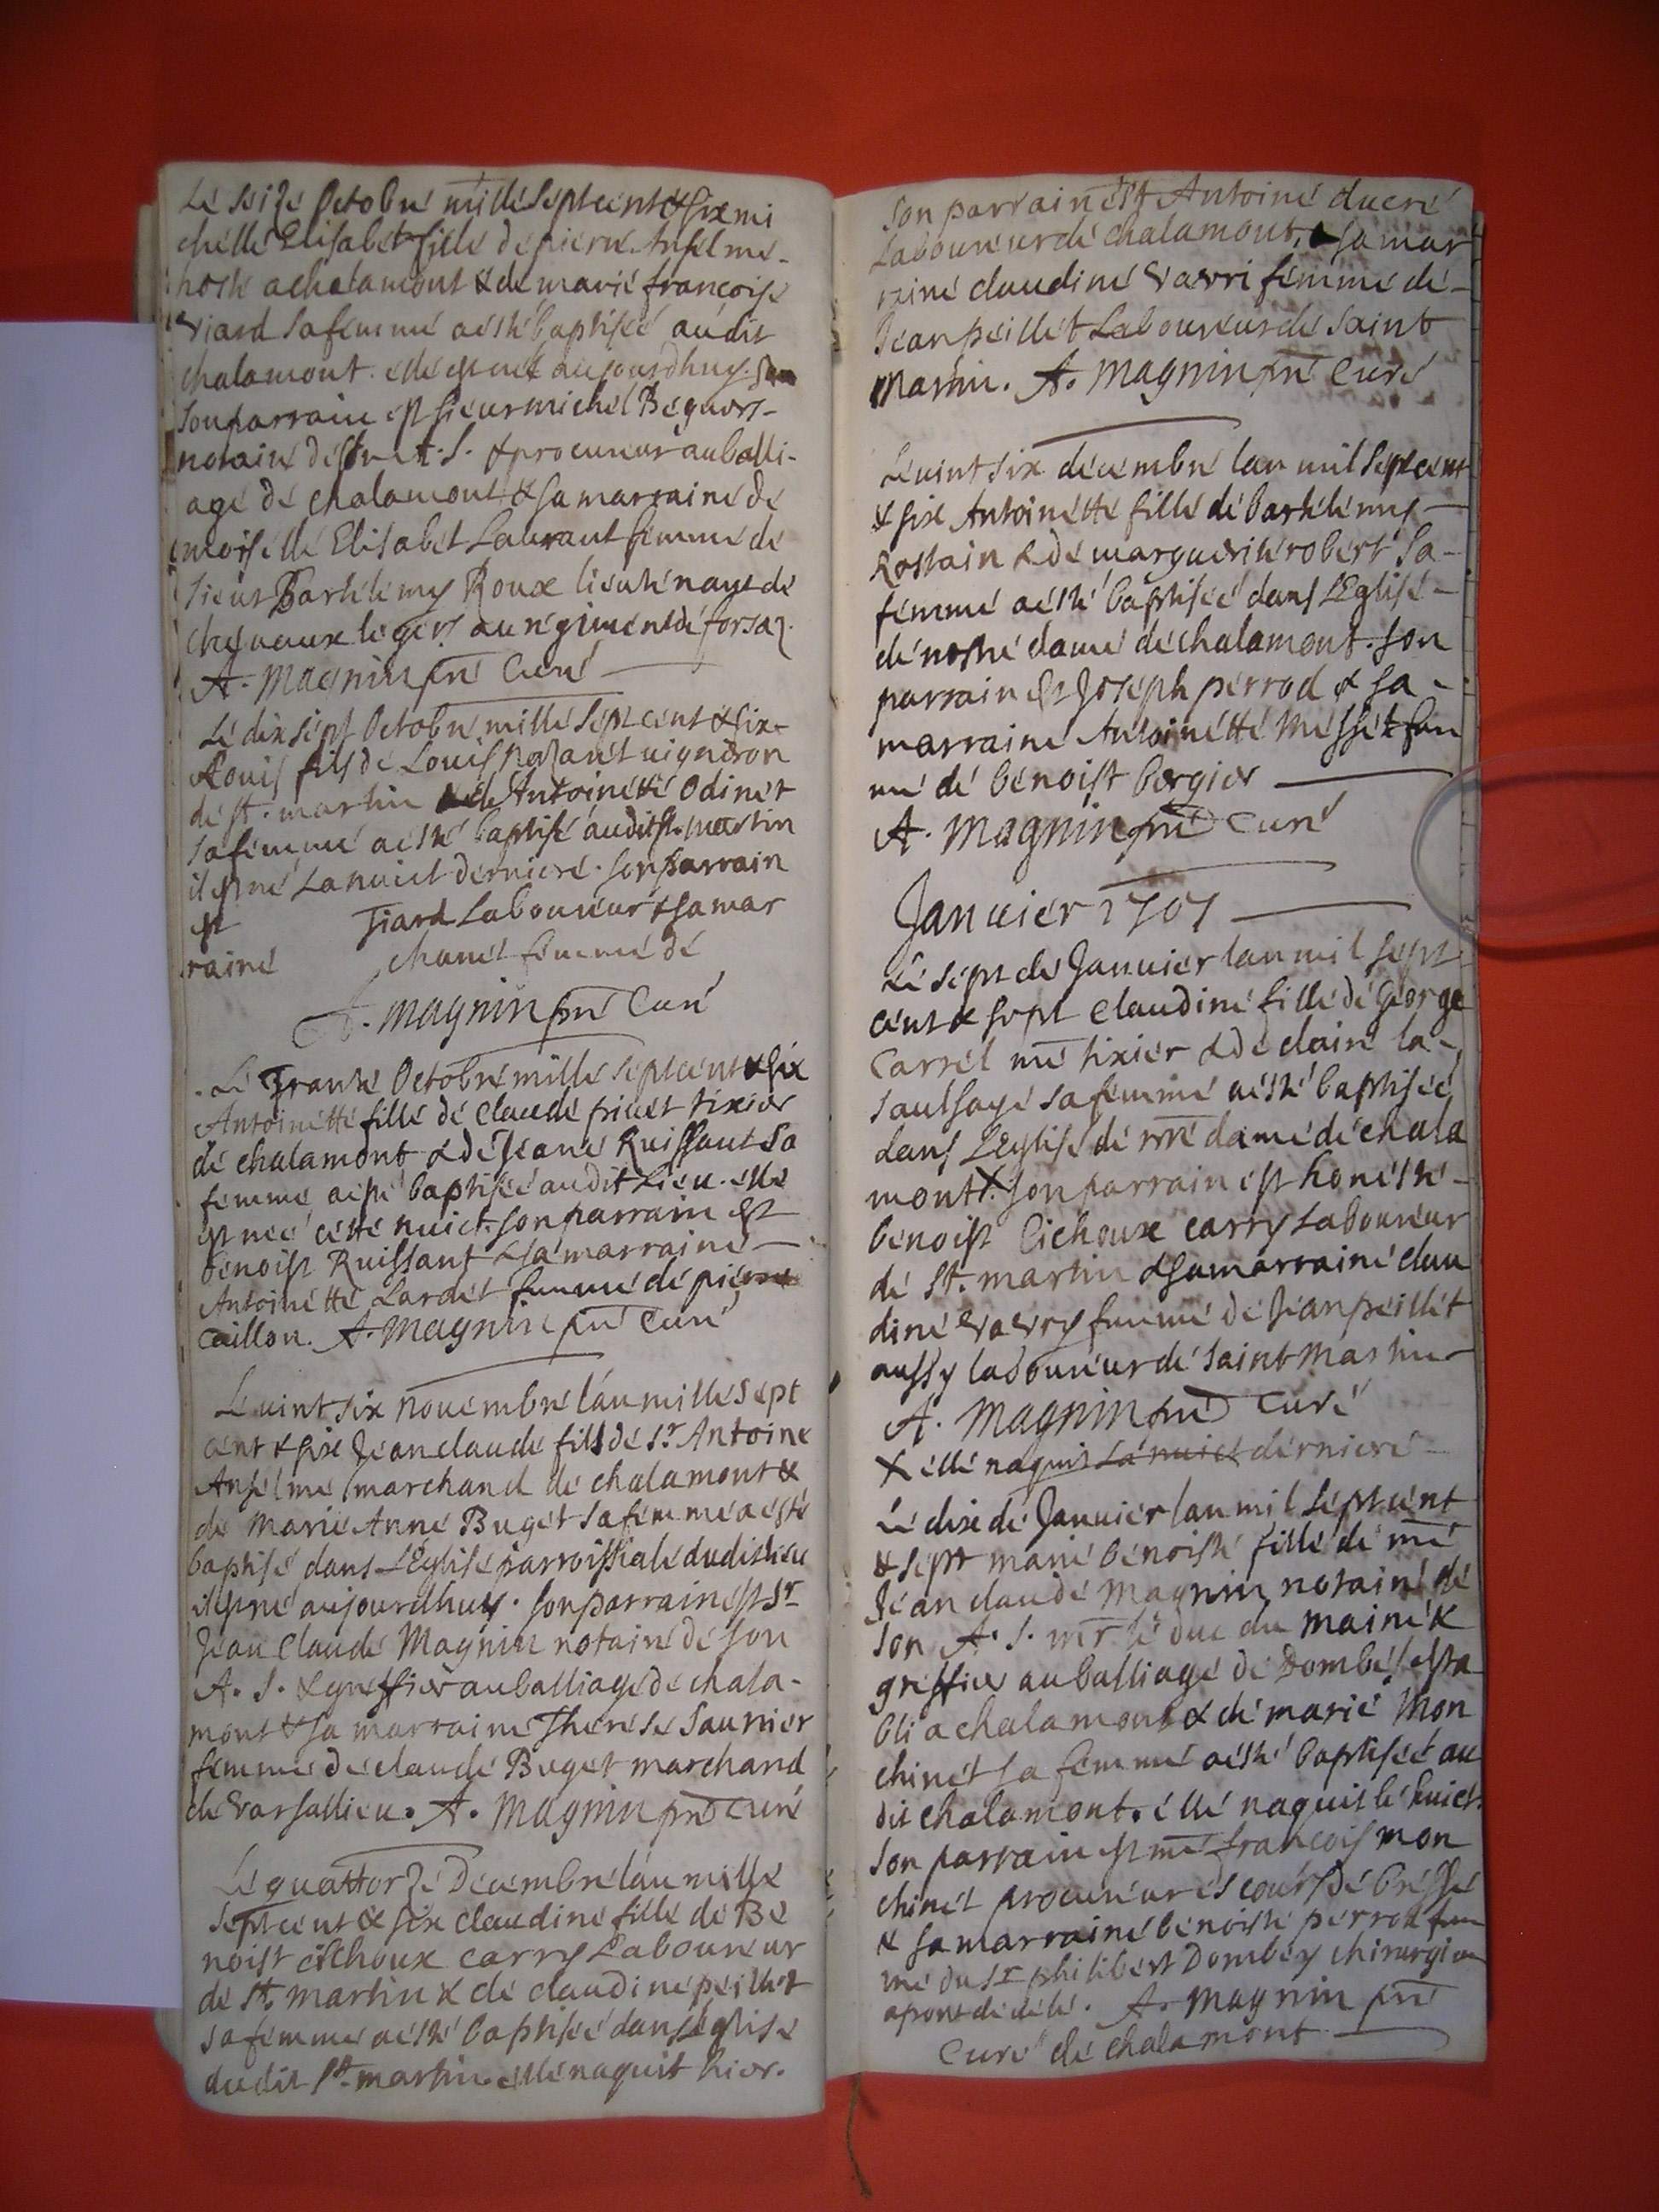 Le seize Octobre mille sept cent & six mi
chelle Elisabet fille de pierre Anselme
hoste a chalamont & de marie françoise
Viard sa femme a esté baptisée audit
chalamont. elle est neé aujourdhuy.
son parrain est sieur michel Beguers
notaire de son A. S. & procureur au balli-
age de chalamont & sa marraine de
moiselle Elisabet Laurant femme de
sieur Barthelemy Roux lieutenant de
chevaux legers au regiment de forsaz.
A. Magnin pre Curé
Le dix sept Octobre mille sept cent & six
Louis fils de Louis vigneron
de st. martin & de Antoinette Odinet
sa femme a esté baptisé audit st. martin
il est né La nuict derniere. son parrain
est Tiard Laboureur & sa mar
raine chanet femme de
A. Magnin pre Curé
Le Trante Octobre mille sept cent & six
Antoinette fille de Claude privet tixier
de chalamont & de Jeane Ruissant sa
femme a esté baptisée audit Lieu. elle
est neé cette nuict. son parrain est
benoist Ruissant & sa marraine
Antoinette Lardet femme de pierre
Caillon. A. Magnin pre Curé
Le vint six novembre l'an mille sept
cent & six Jean claude fils de sr. Antoine
Anselme marchand de chalamont &
de Marie Anne Buget sa femme a esté
baptisé dans L'Eglise parroissiale dudit lieu
il est né aujourdhuy. son parrain est sr.
Jean Claude Magnin notaire de son
A. S. & greffier au balliage de chala-
mont & sa marraine Therese Saunier
femme de claude Buget marchand
de Varsallieu. A. Magnin pre Curé
Le quattorze Decembre l'an mille
sept cent & six claudine fille de Be
noist Cichoux carry Laboureur
de st. martin & de claudine peillet
sa femme a esté baptisée dans l'eglise
dudit st. martin. elle naquit hier.
son parrain est Antoine ducré
Laboureur de chalamont, & sa mar
raine claudine Vavri femme de
Jean peillet Laboureur de saint
Martin. A. Magnin pre Curé
Le vint six decembre lan mil sept cent
& six Antoinette fille de barthelemy
Rostain & de marguerite robert sa
femme a esté baptisée dans L'Eglise
de nostre dame de chalamont. son
parrain est Joseph perrod & sa
marraine Antoinette Messet fem
me de benoist bergier
A. Magnin pre Curé
Januier 1707
Le sept de Januier lan mil sept
cent & sept Claudine fille de George
Carrel me tixier & de claire la
saulsaye sa femme a esté baptisée
dans L'Eglise de nre dame de chala
mont X. son parrain est honeste
benoist Cichoux carry Laboureur
de St. martin & sa marraine clau
dine Vavry femme de Jean peillet
aussy laboureur de saint Martin
A. Magnin pre Curé
X elle naquit La nuict derniere
Le dix de Januier lan mil sept cent
& sept marie benoiste fille de me
Jean claude Magnin notaire de
son A. S. mr le duc du maine &
greffier au balliage de Dombes esta
bli a chalamont & de marie Mon
chinet sa femme a esté baptisée au
dit chalamont. elle naquit le huict.
son parrain est me françois mon
chinet procureur es cours de bresse
& sa marraine benoiste perrod fem
me du sr philibert Dombey chirurgien
a pont de vele. A. Magnin pre
Curé de chalamont